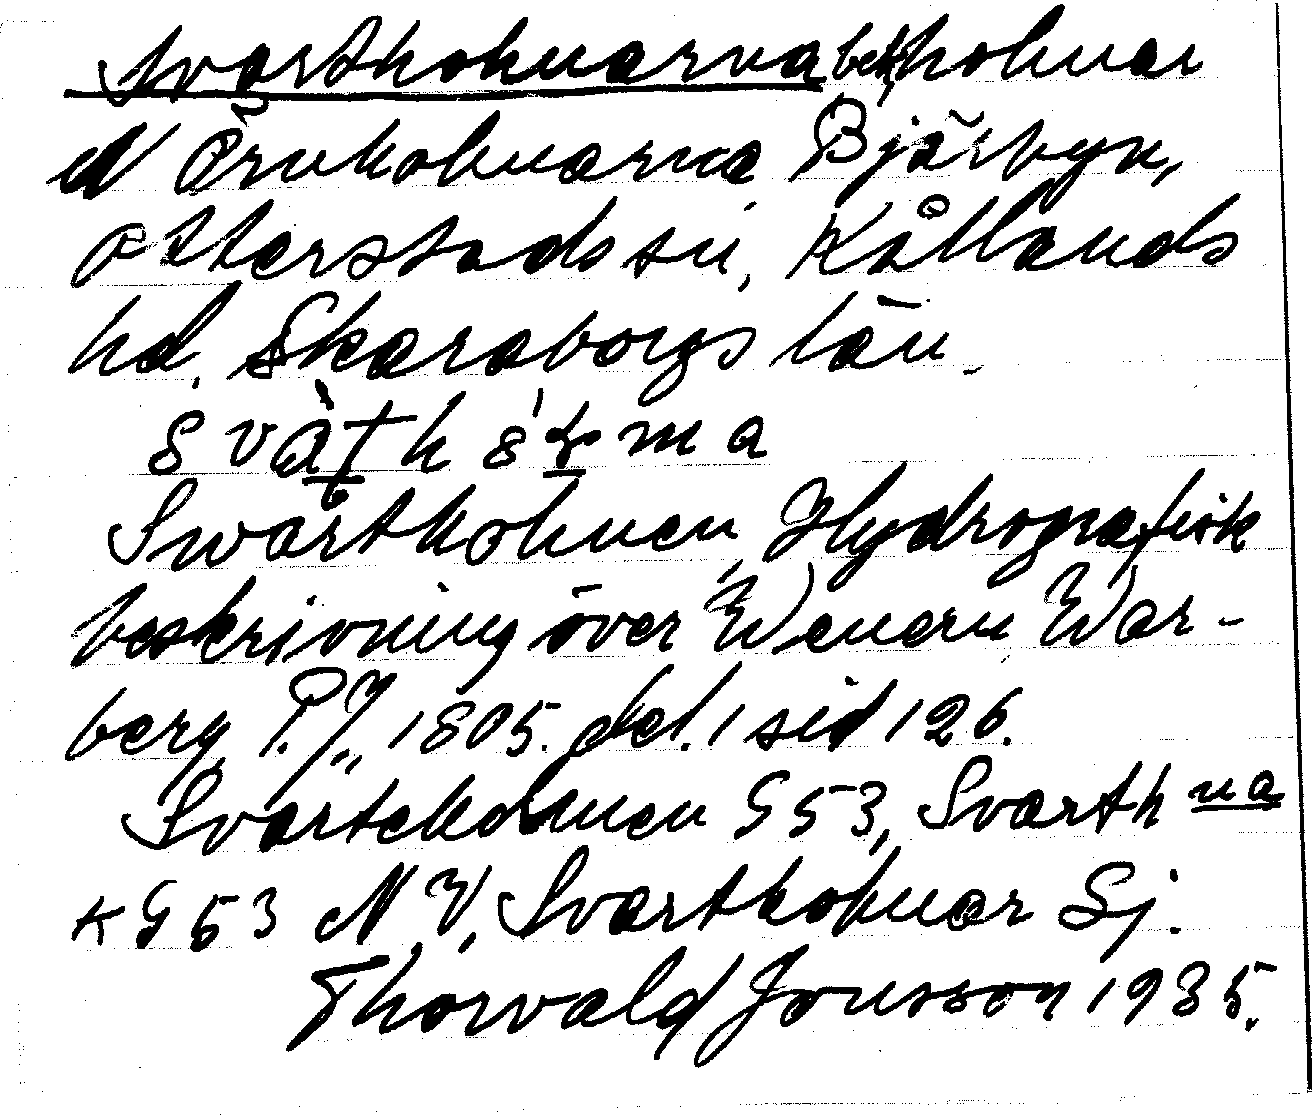 Svartholmarna bet. holmar
N Örnholmarna, Bjärbyn,
Otterstads sn, Kållands
hd. Skaraborgs län.
Swartholmen, Hydrografisk
beskrivning över Wenern War-
berg, P.J., 1805. del. 1 sid 126.
Svarteholmen G53, Svarth na
K G53 N.V. Svartholmar Sj.
Thorvald Jonsson 1935.